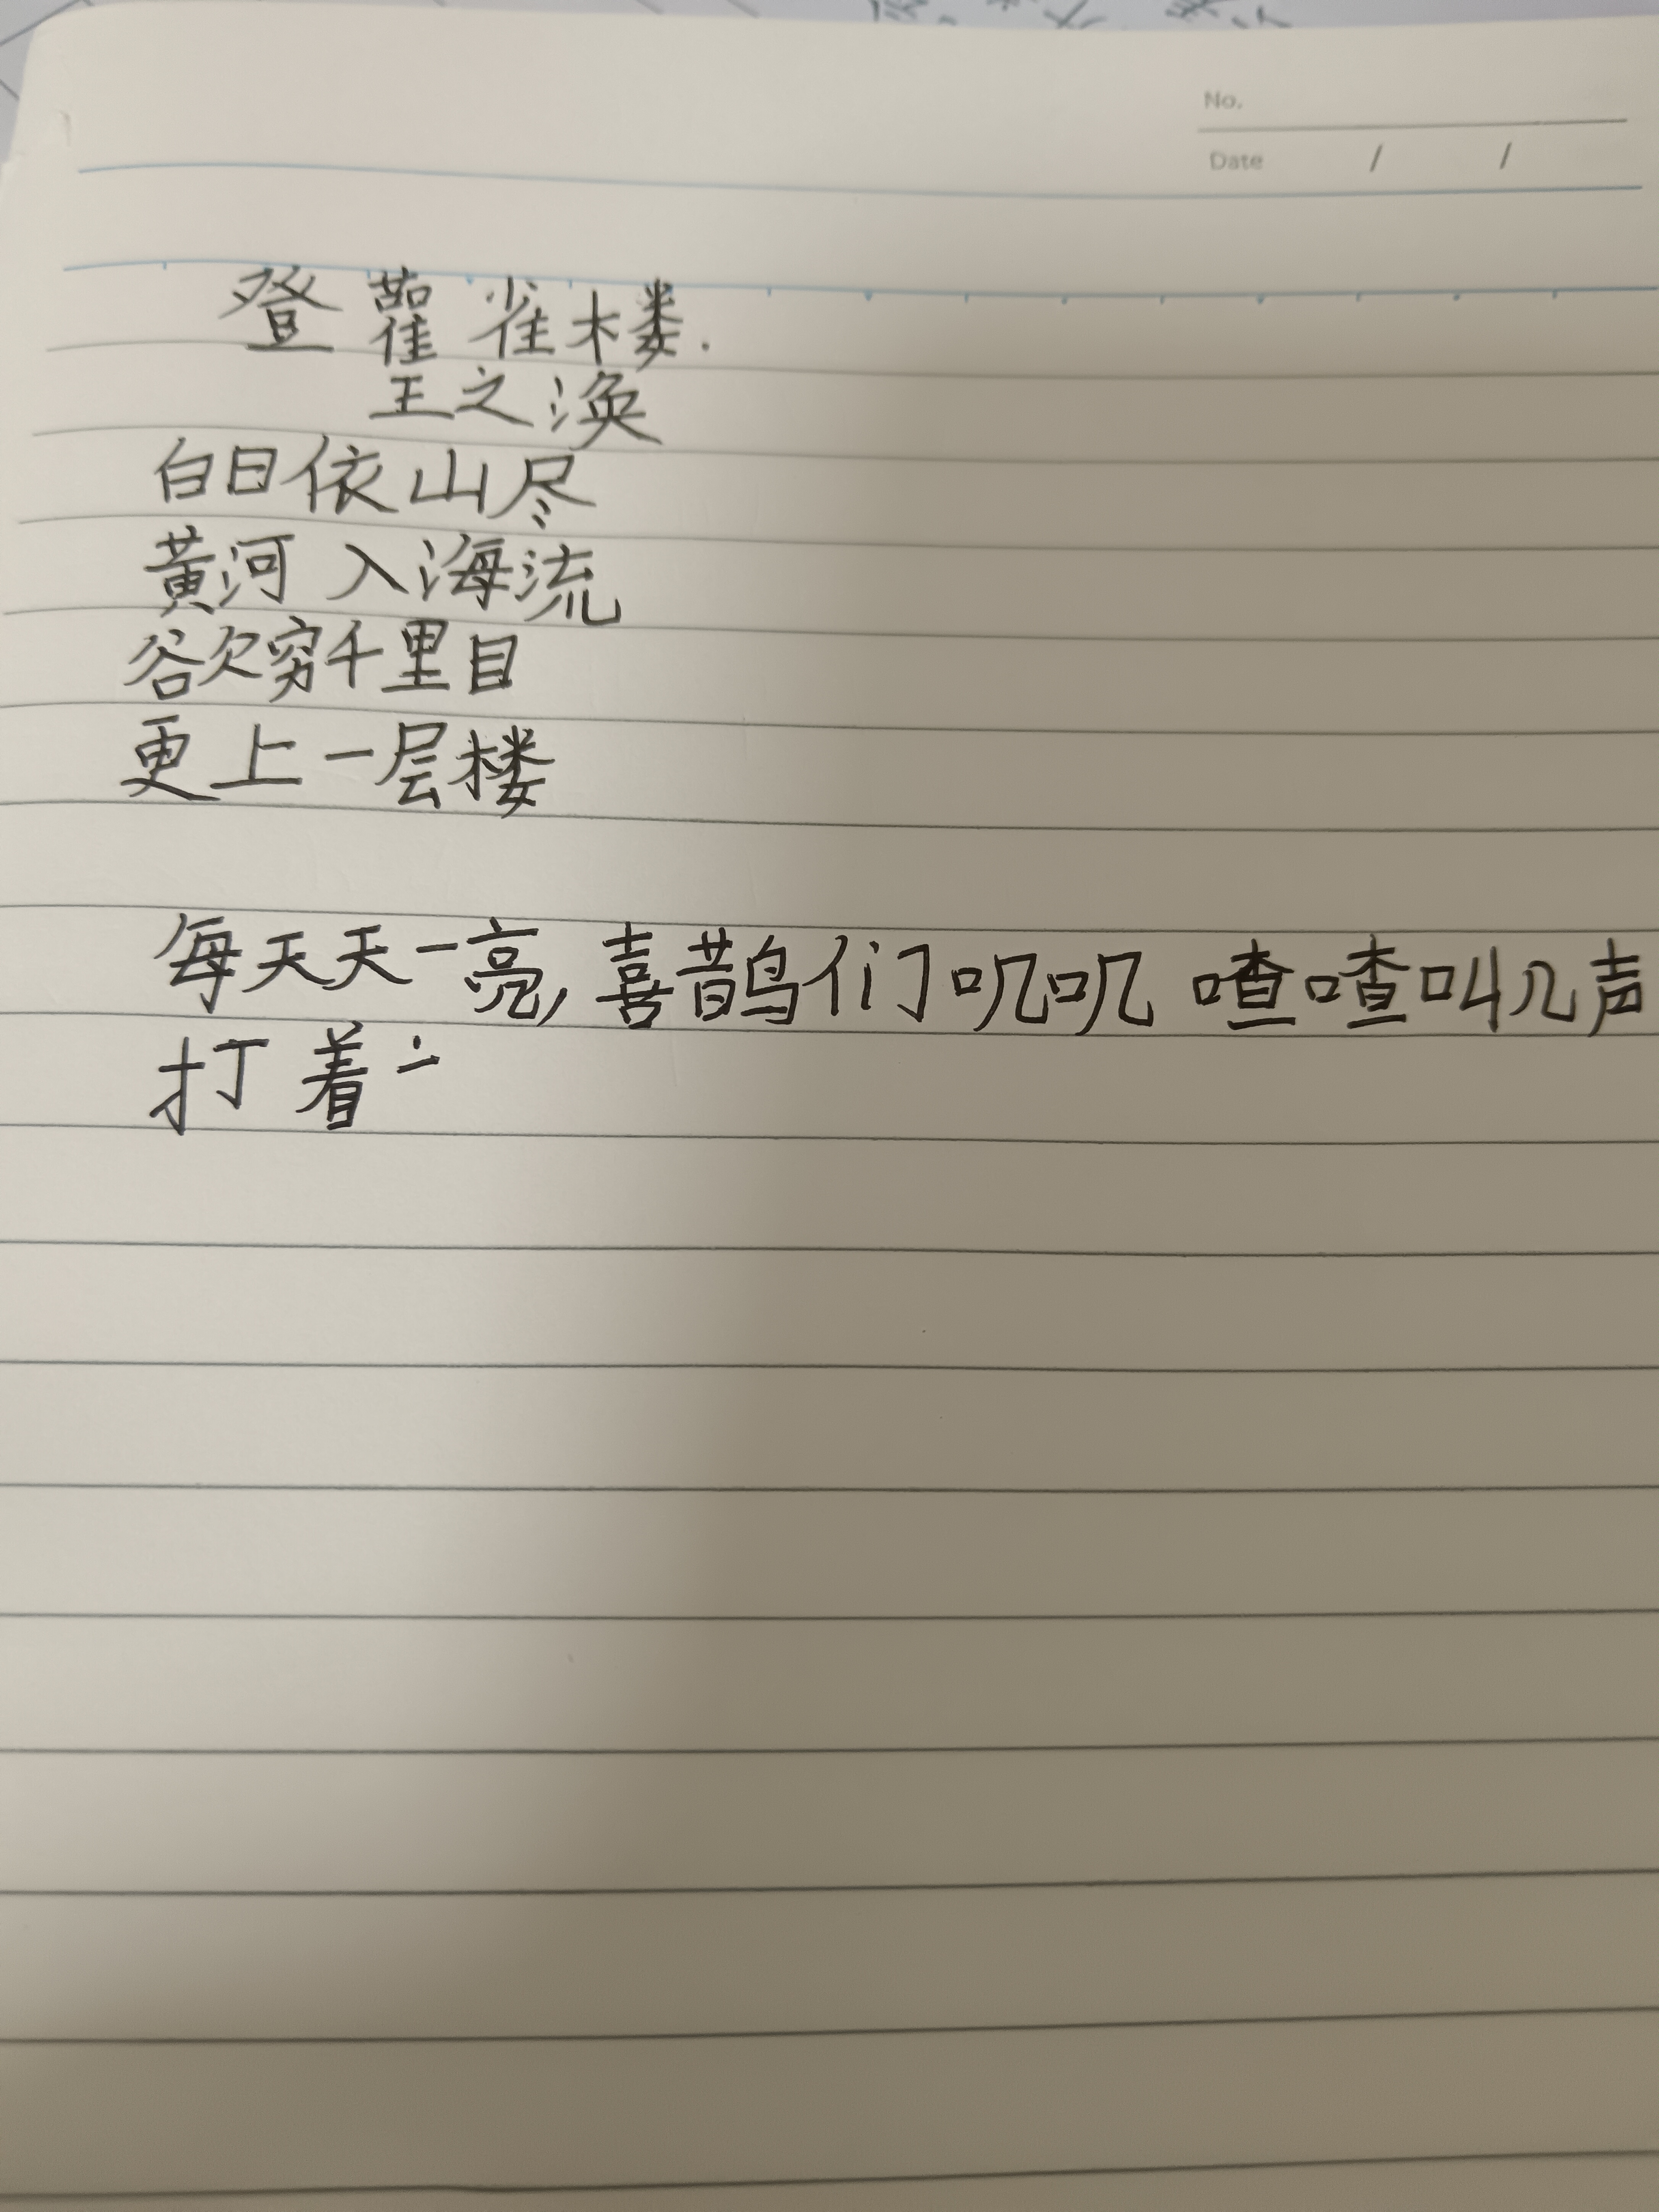 No.
Date / /
登鹳雀楼.
王之涣
白日依山尽
黄河入海流
欲穷千里目
更上一层楼
每天天一亮,喜鹊们叽叽喳喳叫几声
打着